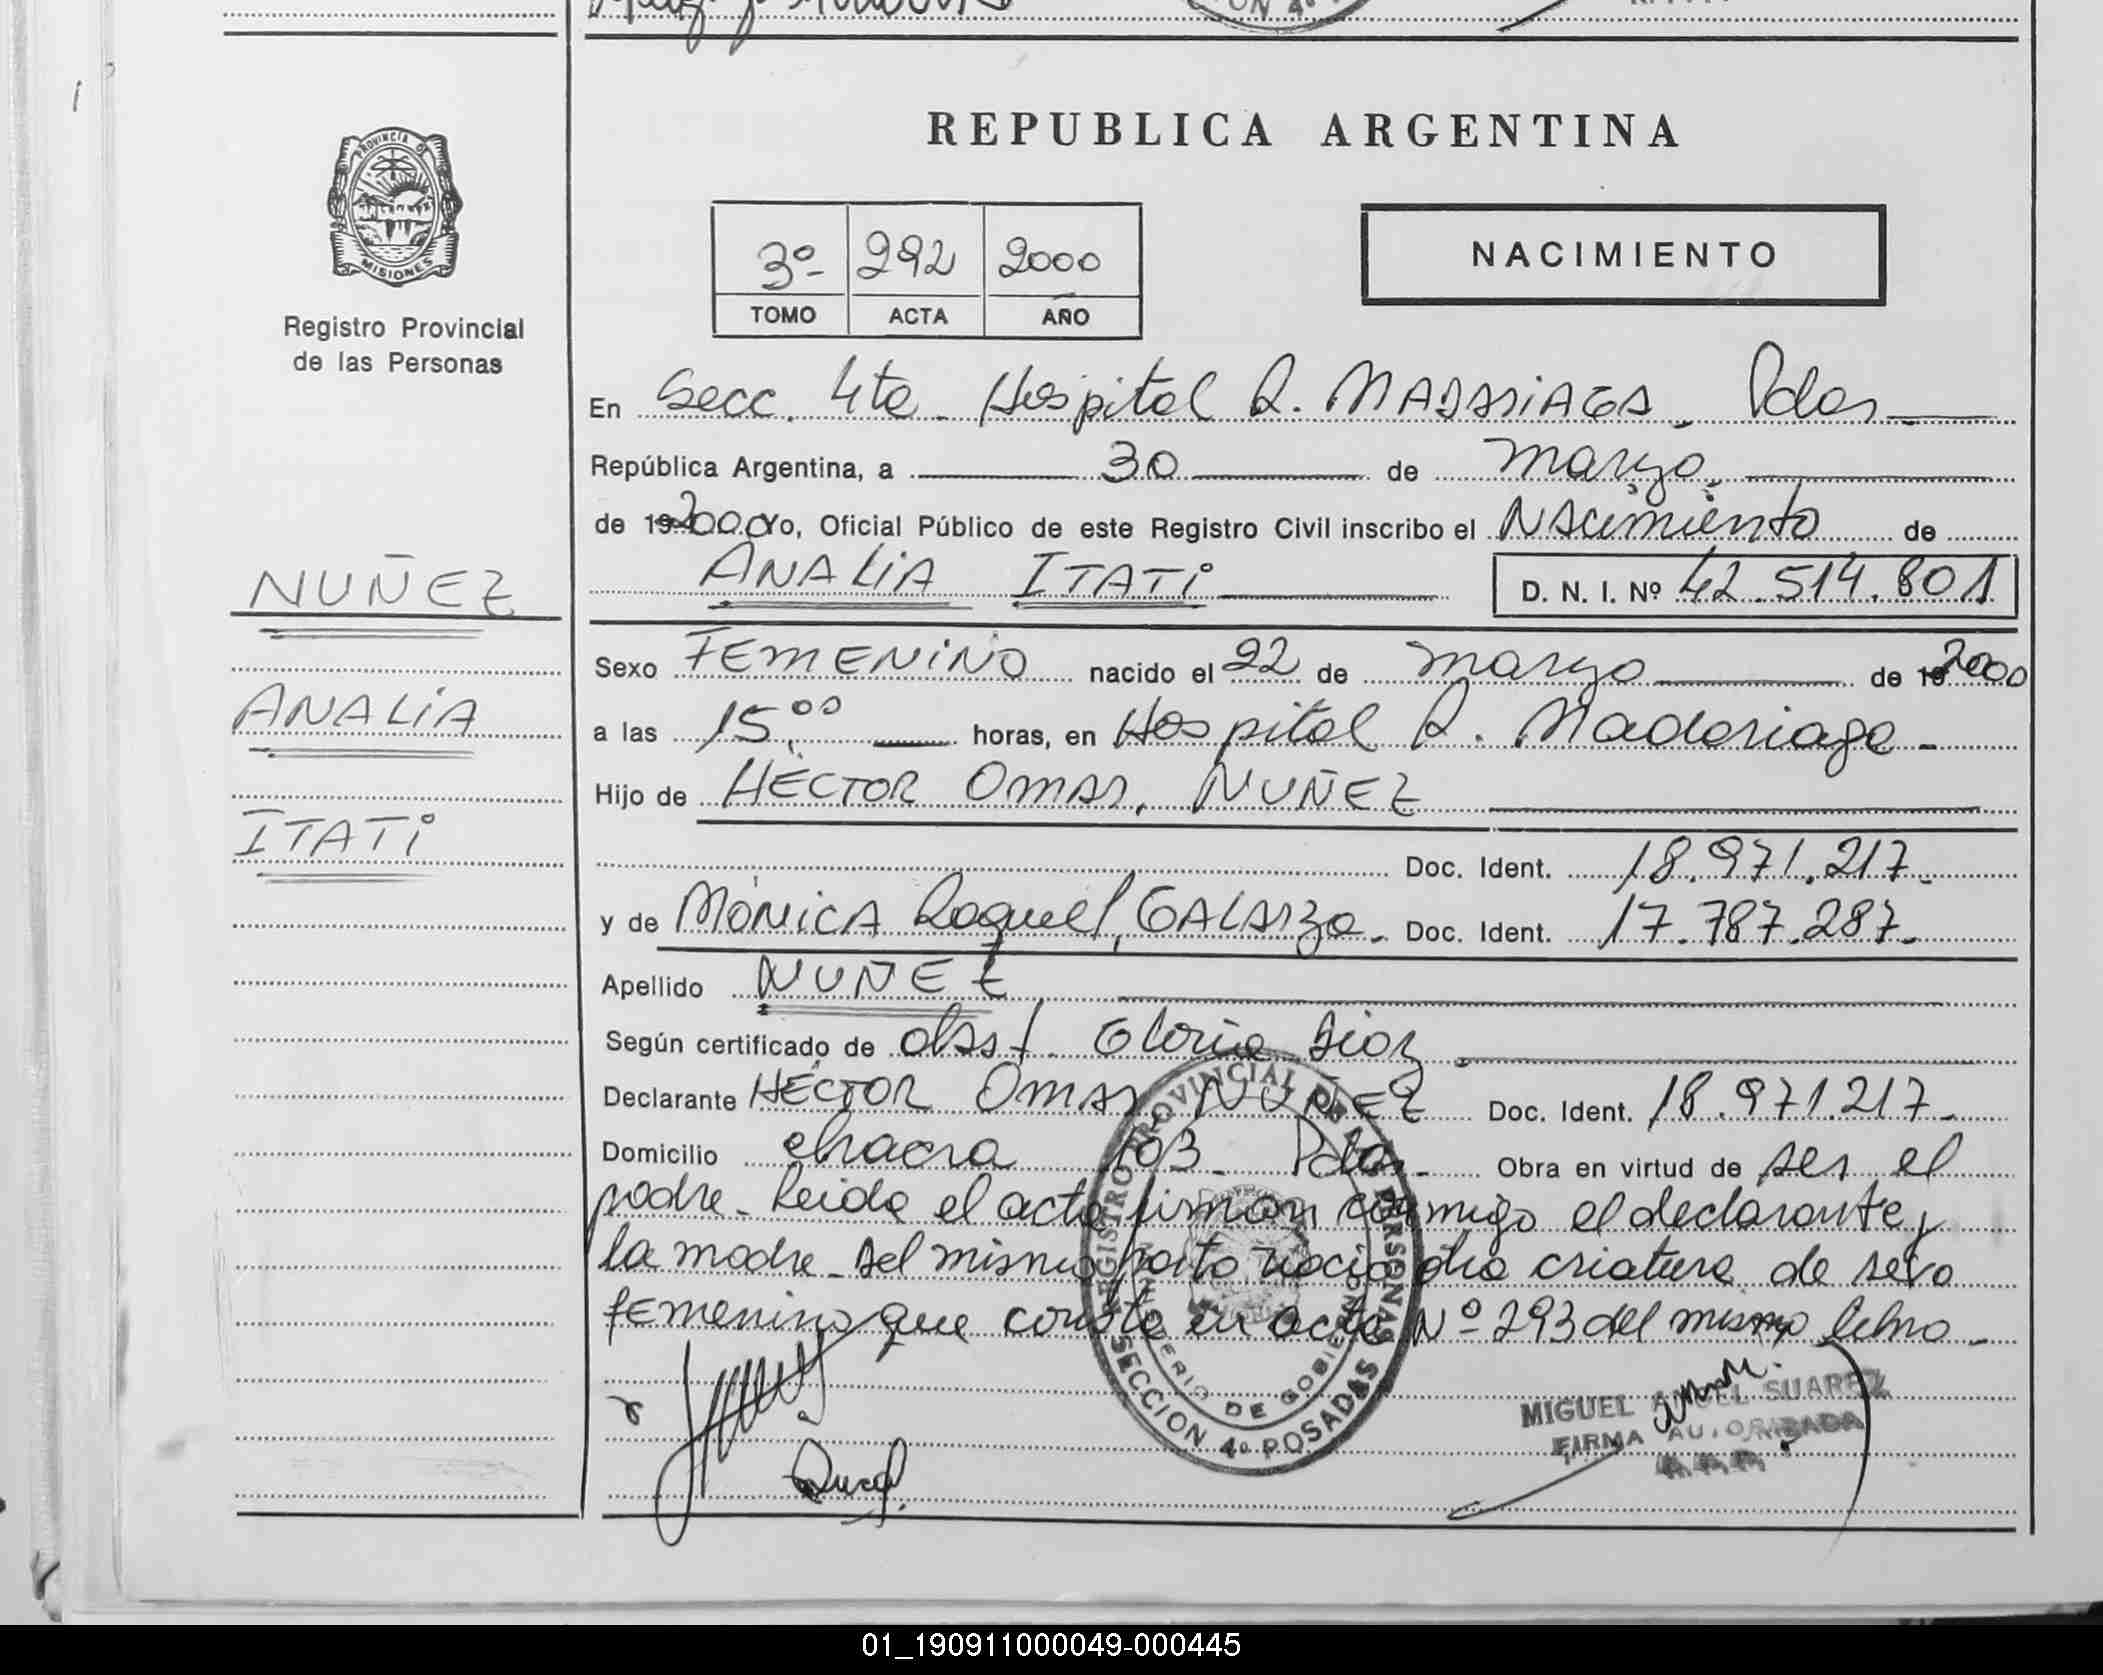 REPUBLICA ARGENTINA
PROVINCIA DE
MISIONES
Registro Provincial
de las Personas
3º 292 2000
TOMO ACTA AÑO
NACIMIENTO
En Secc. 4ta. Hospital R. MADARIAGA. Pdas.
República Argentina, a 30 de marzo
de 19 2000 Yo, Oficial Público de este Registro Civil inscribo el Nacimiento de
ANALIA ITATI D. N. I. Nº 42.514.801
NUÑEZ
ANALIA
ITATI
Sexo FEMENINO nacido el 22 de marzo de 19 2000
a las 15,00 horas, en Hospital R. Madariaga -
Hijo de HÉCTOR OMAR, NUÑEZ
Doc. Ident. 18.971.217.
y de MÓNICA Raquel, GALARZA. Doc. Ident. 17.787.287.
Apellido NUÑEZ
Según certificado de obst. Gloria Diaz.
Declarante HÉCTOR OMAR NUÑEZ Doc. Ident. 18.971.217.
Domicilio chacra 103. Pdas. Obra en virtud de ser el
padre. Leida el acta firman conmigo el declarante y
la madre. Del mismo parto nació otra criatura de sexo
femenino que consta en acta Nº 293 del mismo libro.
REGISTRO PROVINCIAL DE LAS PERSONAS
MINISTERIO DE GOBIERNO
SECCION 4º POSADAS
MIGUEL ANGEL SUAREZ
FIRMA AUTORIZADA
01_190911000049-000445